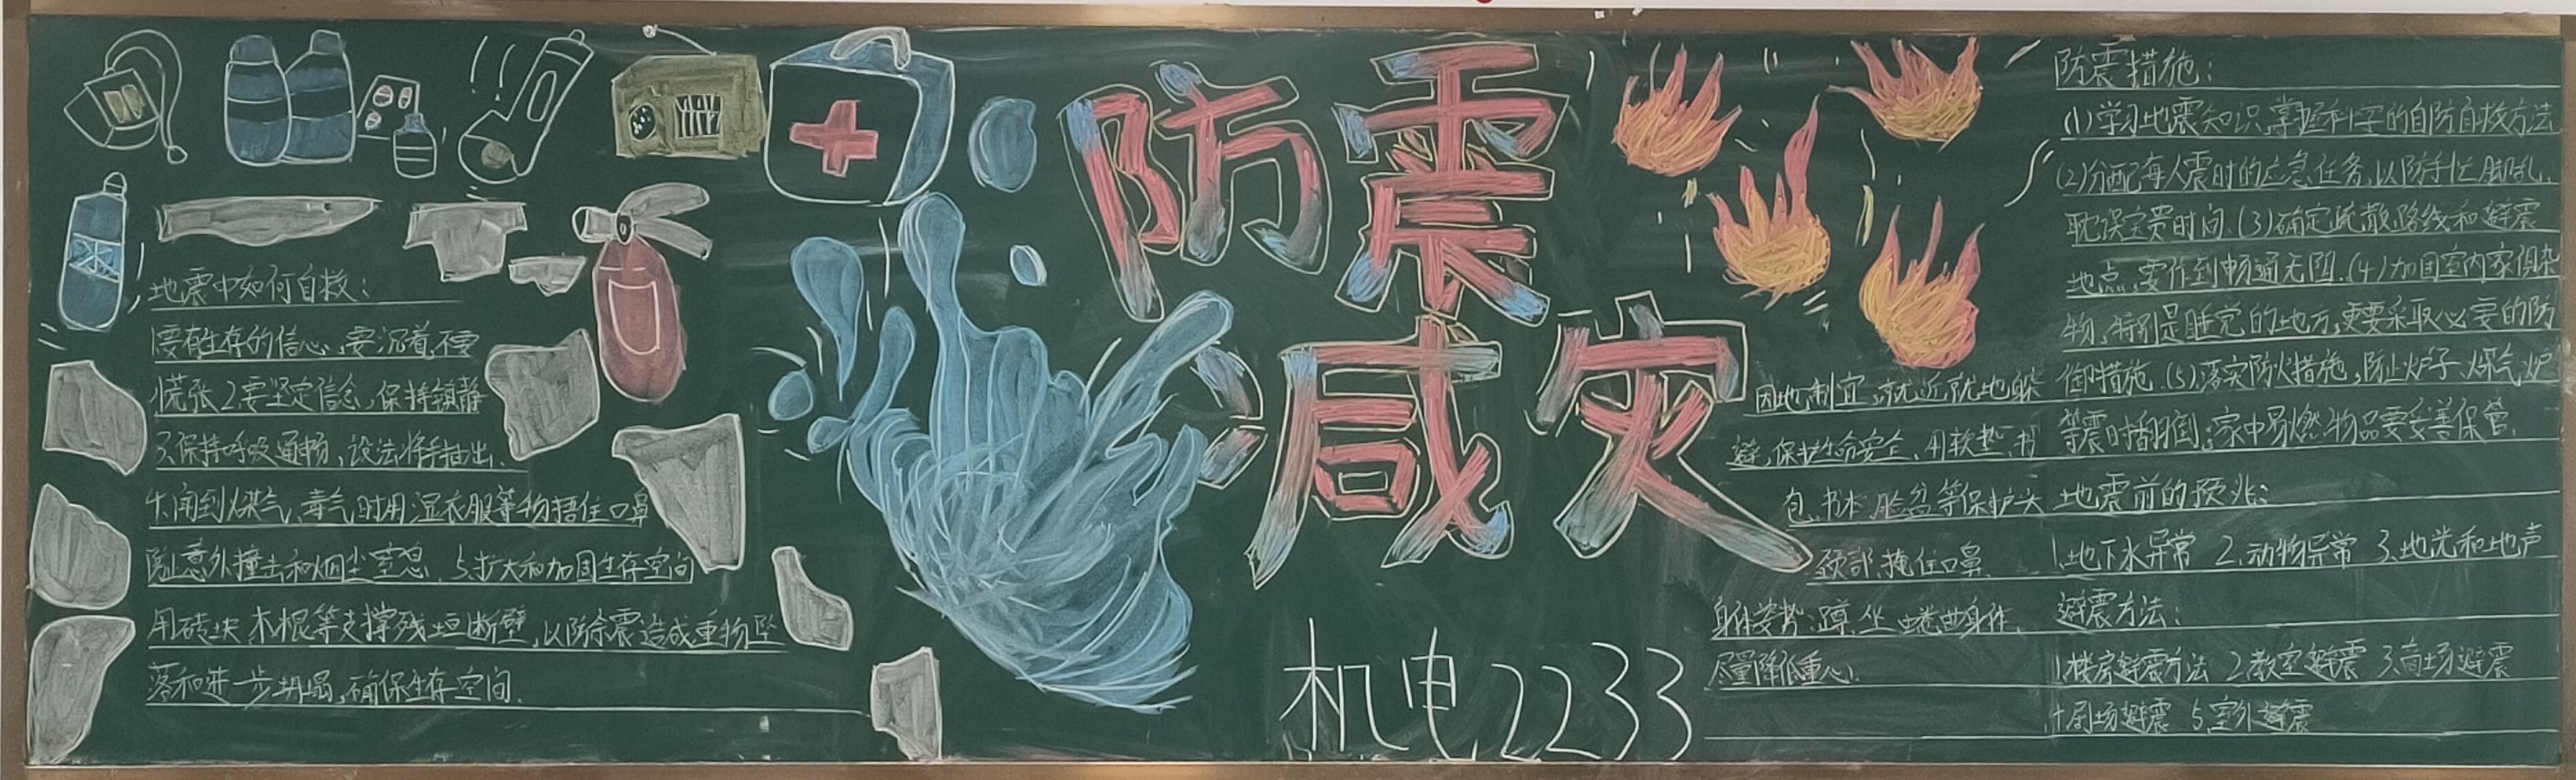 地震中如何自救：
1.要有生存的信心,要沉着,不要
慌张2.要坚定信念,保持镇静
3.保持呼吸通畅,设法将手抽出.
4.闻到煤气、毒气时用湿衣服等物捂住口鼻
防止意外撞击和烟尘窒息. 5.扩大和加固生存空间
用砖块、木棍等支撑残垣断壁,以防余震造成重物坠
落和进一步坍塌,确保生存空间.
防震
减灾
机电2233
因地制宜,就近就地躲
避,保护生命安全、用软垫、书
包、书本、脸盆等保护头
颈部、掩住口鼻
身体姿势：蹲、坐、蜷曲身体,
尽量降低重心.
防震措施：
(1)学习地震知识,掌握科学的自防自救方法
(2)分配每人震时的应急任务,以防手忙脚乱,
耽误宝贵时间.(3)确定疏散路线和避震
地点,要作到畅通无阻.(4)加固室内家俱杂
物,特别是睡觉的地方,更要采取必要的防
御措施.(5)落实防火措施,防止炉子、煤气炉
等震时翻倒;家中易燃物品要妥善保管.
地震前的预兆：
1.地下水异常 2.动物异常 3.地光和地声
避震方法：
1.楼房避震方法 2.教室避震 3.商场避震
4.剧场避震 5.室外避震